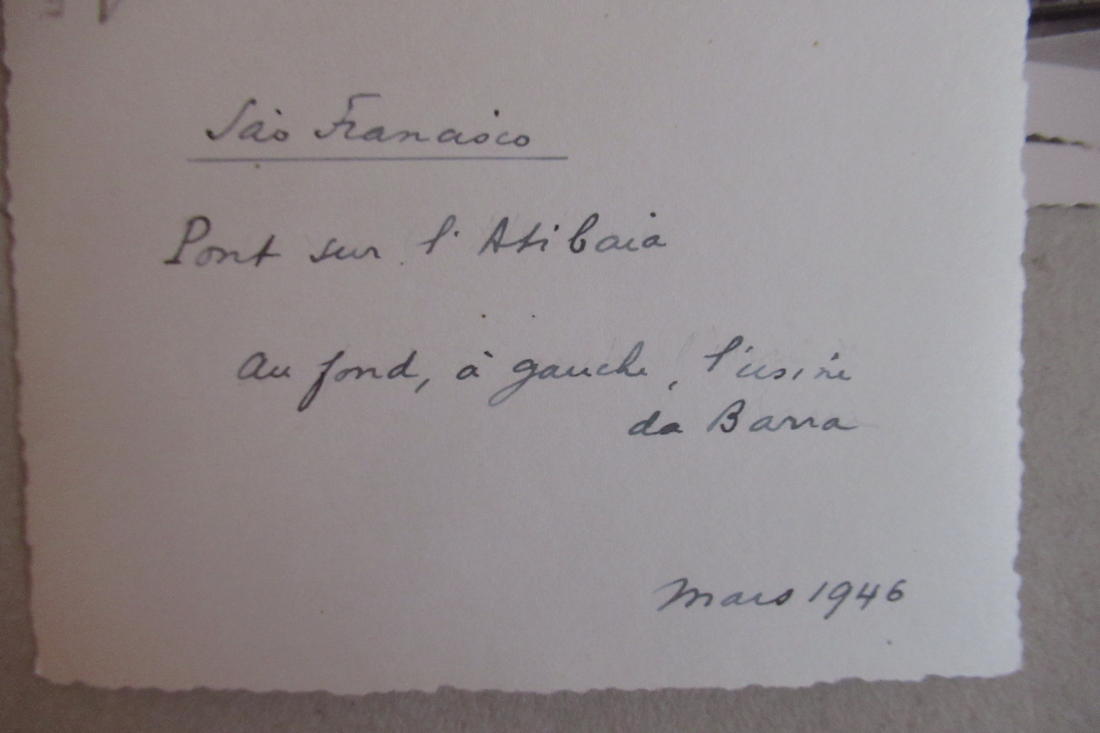 São Francisco
Pont sur l'Atibaia
Au fond, à gauche, l'usine
da Barra
Mars 1946